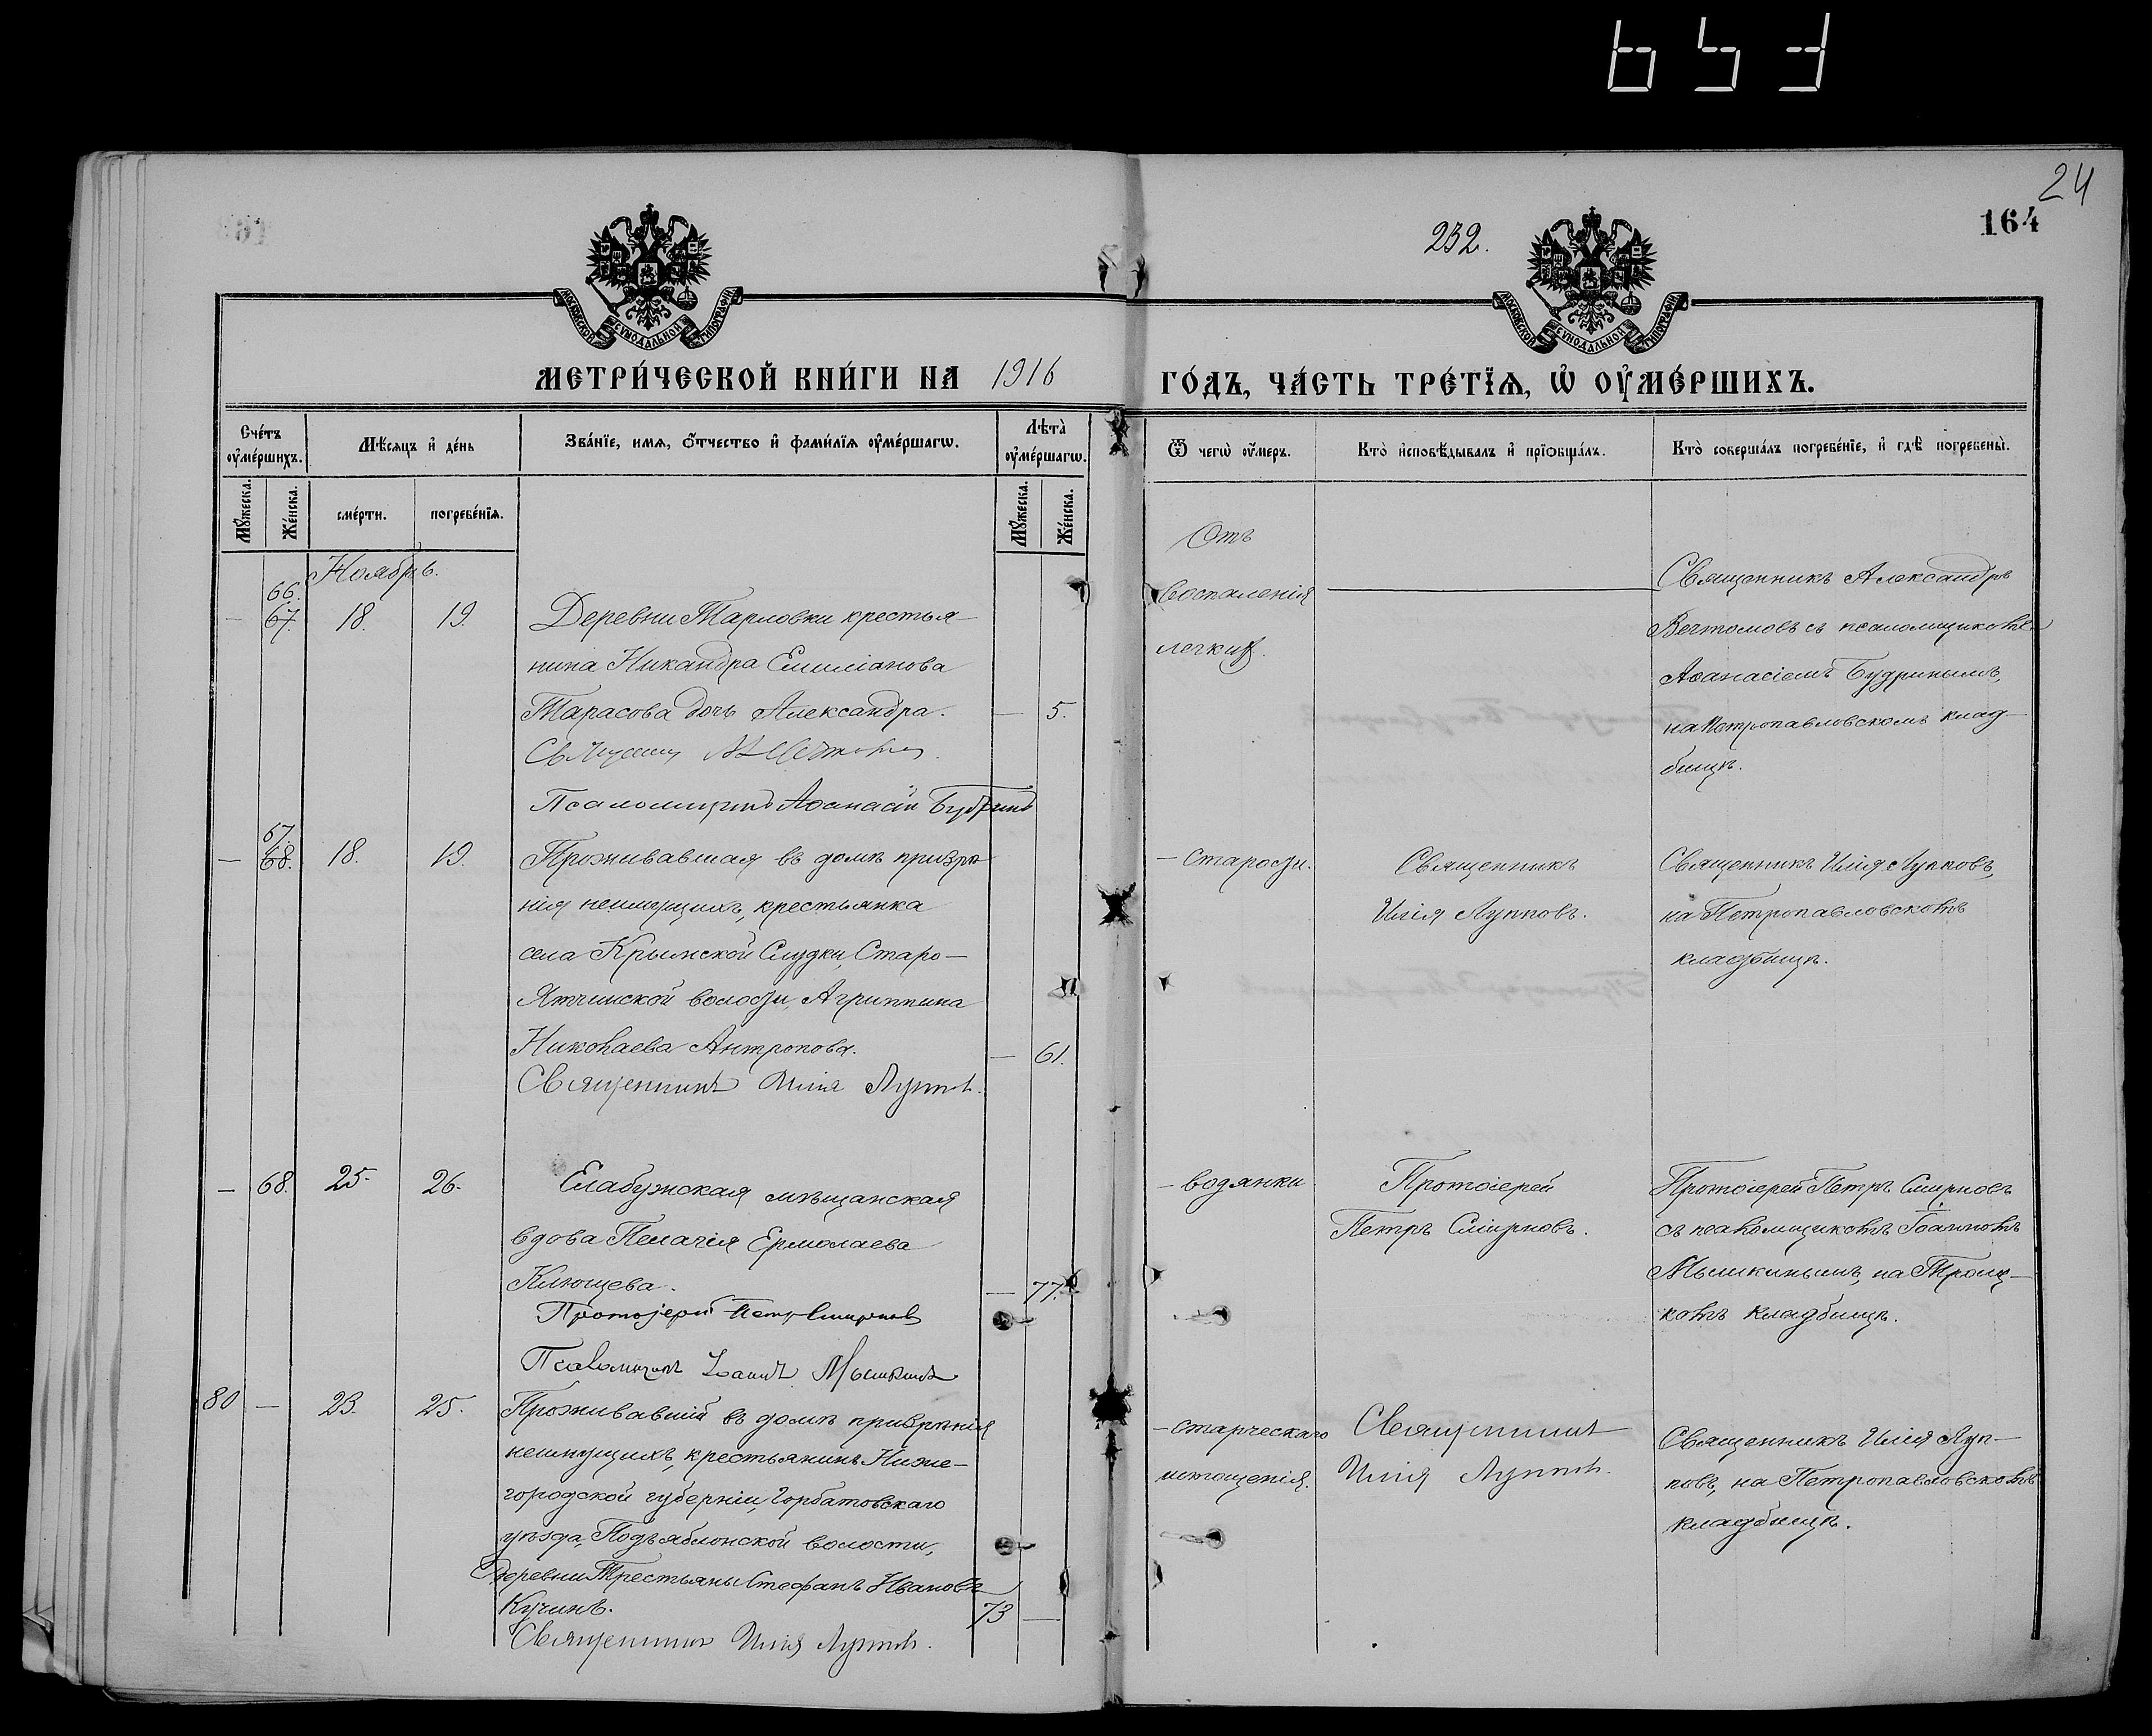 653
24
164
232.
МОСКОВСКОЙ СУНОДАЛЬНОЙ ТИПОГРАФІИ
МОСКОВСКОЙ СУНОДАЛЬНОЙ ТИПОГРАФІИ
МЕТРИ́ЧЕСКОЙ КНИ́ГИ НА 1916 ГО́ДЪ, ЧА́СТЬ ТРЕ́ТЇѦ, Ѡ҆ ОУ҆МЕ́РШИХЪ.
Сче́тъ оу҆ме́ршихъ.
Мѣ́сяцъ и҆ де́нь
Зва́нїе, имѧ, ѻ҆́тчество и҆ фами́лїѧ оу҆ме́ршагѡ.
Лѣта̀ оу҆ме́ршагѡ.
Ѿ чегѡ̀ оу҆́меръ.
Кто̀ и҆сповѣ́дывалъ и҆ прїѡбща́лъ.
Кто̀ соверша́лъ погребе́нїе, и҆ гдѣ̀ погребены̀.
Мꙋ́жеска.
Же́нска.
сме́рти.
погребе́нїѧ.
Мꙋ́жеска.
Же́нска.
Ноябрь.
66.
— 67. 18. 19.
Деревни Тарловки крестья-
нина Никандра Емиліанова
Тарасова дочь Александра. — 5.
Псаломщикъ Аѳанасій Будринъ
Отъ
воспаленія
легкихъ.
Священникъ Александръ
Вечтомовъ съ псаломщикомъ
Аѳанасіемъ Будринымъ,
на Петропавловскомъ клад-
бищѣ.
67.
— 68. 18. 19.
Проживавшая въ домѣ призрѣ-
нія неимущихъ, крестьянка
села Крымской Слудки, Старо-
Ятчинской волости, Агриппина
Николаева Антропова. — 61.
Священникъ Илія Лупповъ.
— старости.
Священникъ
Илія Лупповъ.
Священникъ Илія Лупповъ,
на Петропавловскомъ
кладбищѣ.
— 68. 25. 26.
Елабужская мѣщанская
вдова Пелагія Ермолаева
Клющева. — 77.
Протоіерей Петръ Смирновъ
Псаломщикъ Іоаннъ Мышкинъ
— водянки
Протоіерей
Петръ Смирновъ.
Протоіерей Петръ Смирновъ
съ псаломщикомъ Іоанномъ
Мышкинымъ, на Троиц-
комъ кладбищѣ.
80 — 23. 25.
Проживавшій въ домѣ призрѣнія
неимущихъ, крестьянинъ Ниже-
городской губерніи, Горбатовскаго
уѣзда, Подъяблонской волости,
деревни Трестьяны Стефанъ Ивановъ
Кучинъ. 73 —
Священникъ Илія Лупповъ.
— старческаго
истощенія.
Священникъ
Илія Лупповъ.
Священникъ Илія Луп-
повъ, на Петропавловскомъ
кладбищѣ.